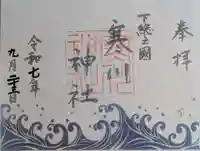 奉拝
下総之國
寒川
神社
令和七年
九月二十三日